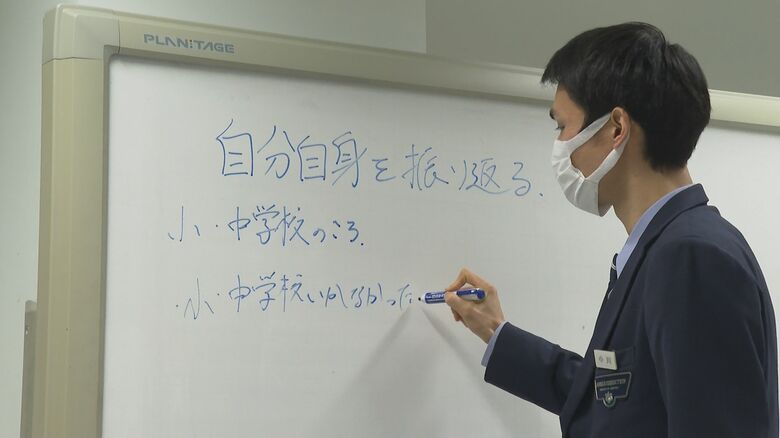 PLANTAGE
自分自身を振り返る.
小・中学校のころ.
・小・中学校いかなかった.
小川